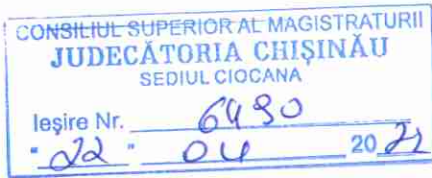 CONSILIUL SUPERIOR AL MAGISTRATURII
JUDECĂTORIA CHIȘINĂU
SEDIUL CIOCANA
Ieșire Nr. 6490
"22" 04 2021